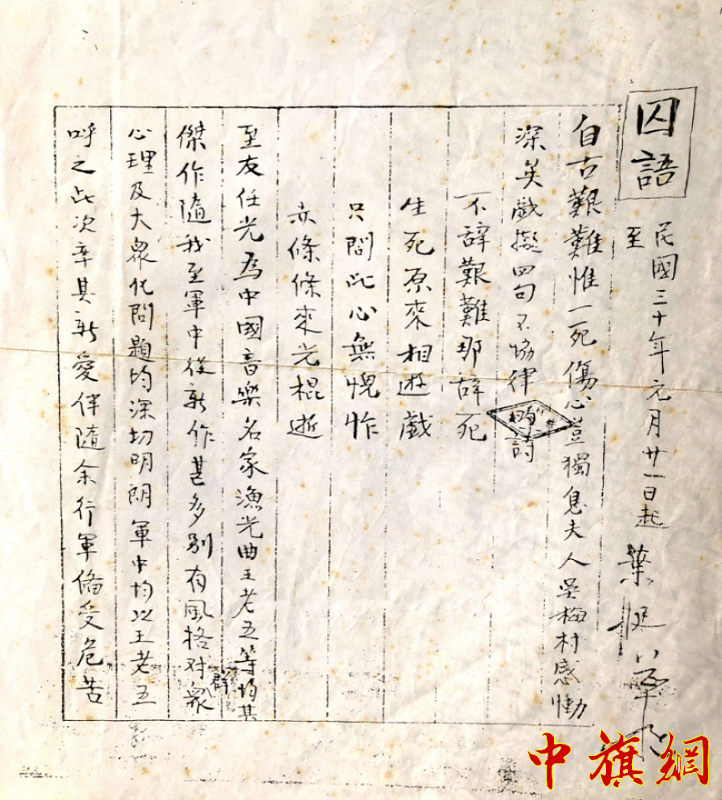 囚語
民國三十年元月廿一日起
至
葉挺
自古艱難惟一死傷心豈獨息夫人吳梅村感慟
深矣戲擬四句不協律
詩
不辭艱難那辭死
生死原來相遊戲
只問此心無愧怍
赤條條來光棍逝
至友任光為中國音樂名家漁光曲王老五等均其
傑作隨我至軍中從新作甚多別有風格对羣眾
心理及大眾化問題均深切明朗軍中均以王老五
呼之此次率其新愛伴隨余行軍備受危苦
中旗網